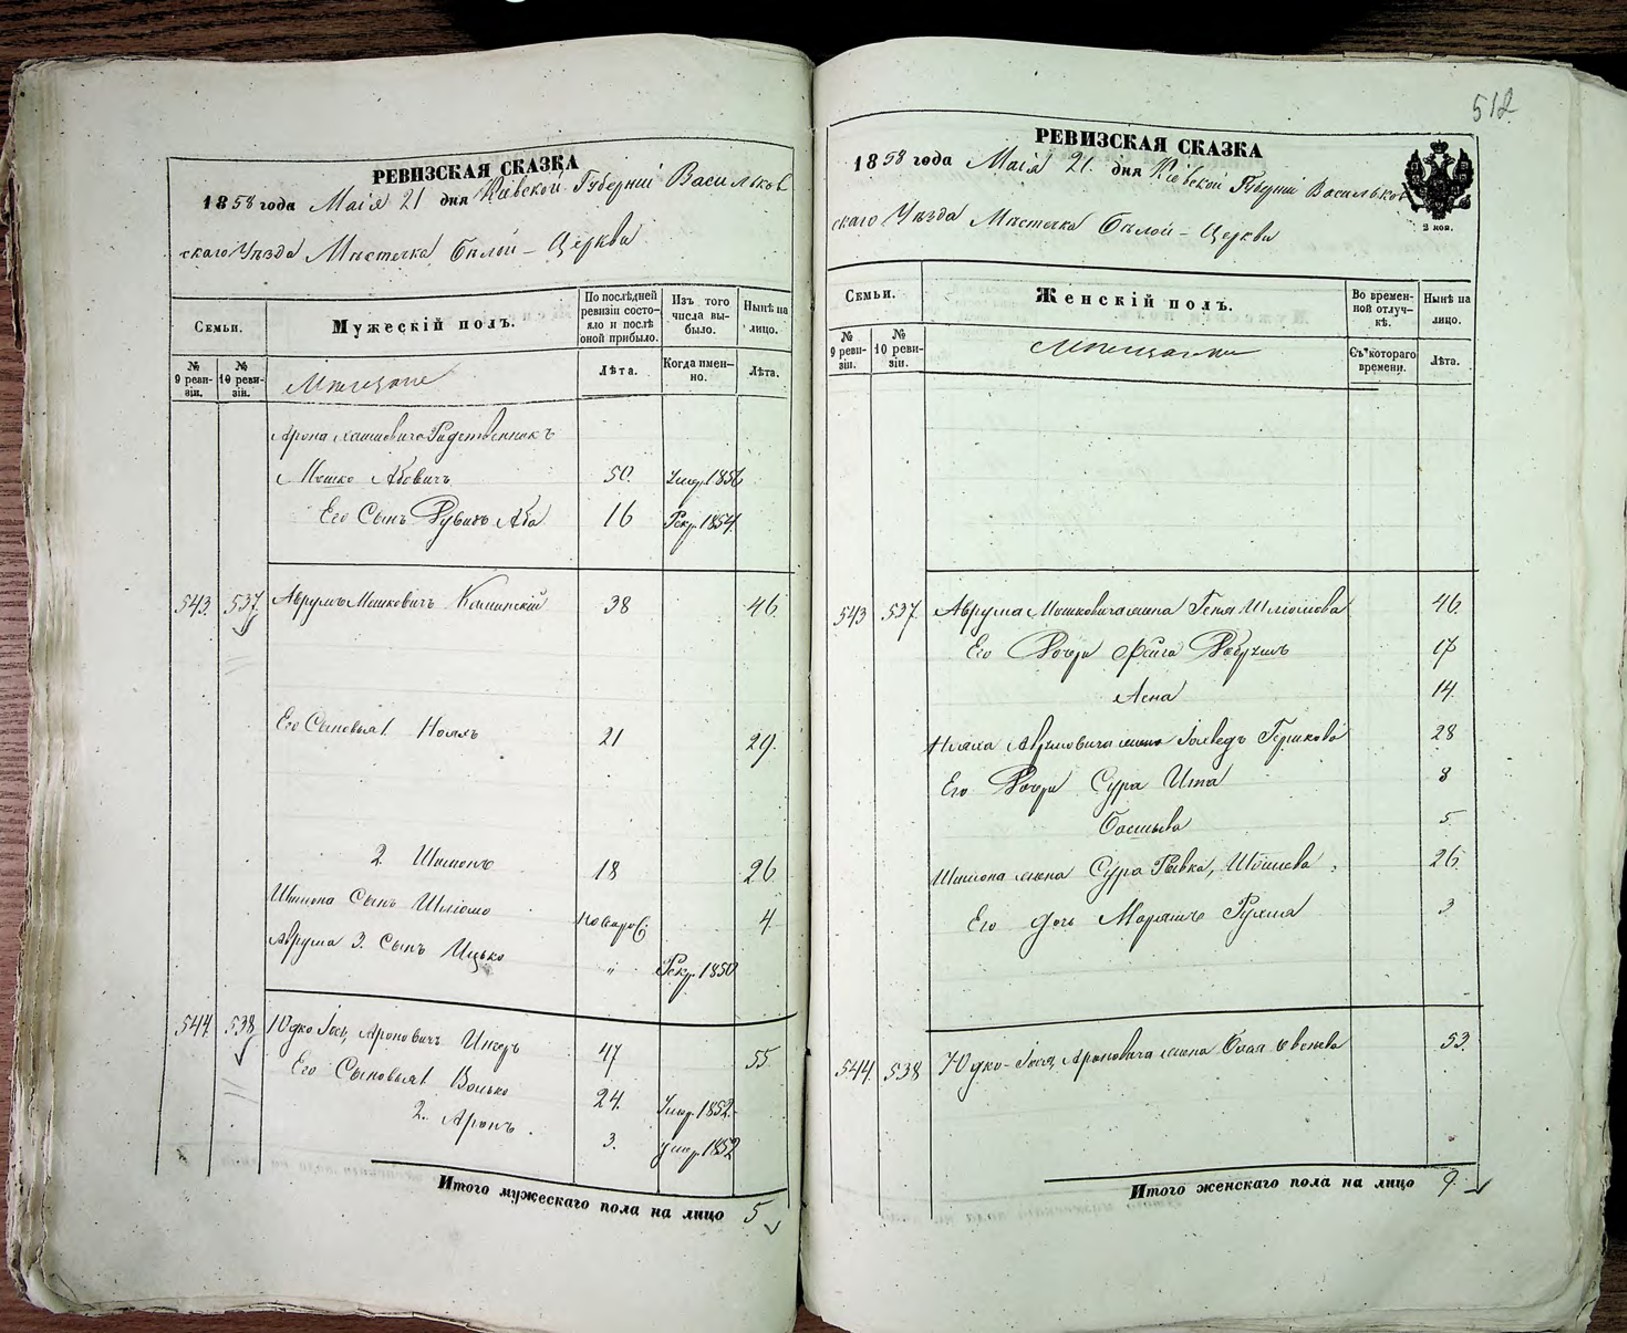 РЕВИЗСКАЯ СКАЗКА
1858 года Маія 21 дня Кіевской Губерніи Васильков
скаго Уѣзда Мѣстечка Бѣлой-Церкви
Семьи.
Мужескій полъ.
По послѣдней ревизіи состояло и послѣ оной прибыло.
Изъ того числа выбыло.
Нынѣ на лицо.
№ 9 ревизіи.
№ 10 ревизіи.
Мѣщане
Лѣта.
Когда именно.
Лѣта.
Арона Родственникъ
Мошко Абовичъ 50. Умер. 1856
Его Сынъ Аба 16 Рекр. 1854.
543. 537. Аврумъ Мошковичъ 38 46.
Его Сыновья 1. 21 29.
2. Шимонъ 18 26
Шимона Сынъ Шліомо новорож. 4.
Аврума 3. Сынъ Ицько " Рекр. 1850
544. 538 Юдко Ароновичъ 47 55
Его Сыновья 1. Волько 24. Умер. 1852.
2. Аронъ. 3. умер. 1852
Итого мужескаго пола на лицо 5
512
РЕВИЗСКАЯ СКАЗКА
1858 года Маія 21. дня Кіевской Губерніи Васильков
скаго Уѣзда Мѣстечка Бѣлой-Церкви
2 коп.
Семьи.
Женскій полъ.
Во временной отлучкѣ.
Нынѣ на лицо.
№ 9 ревизіи.
№ 10 ревизіи.
Мѣщанки
Съ котораго времени.
Лѣта.
543 537. Аврума Мошковича жена Геня Шліомова 46.
Его Дочери Фейга 17
Асна 14.
Аврумовича жена Гершкова 28
Его Дочери Сура Ита 8
Басшева 5.
Шимона жена Сура Ривка, 26
Его дочь Рухля 3
544. 538 Юдко Ароновича жена 53.
Итого женскаго пола на лицо 9.